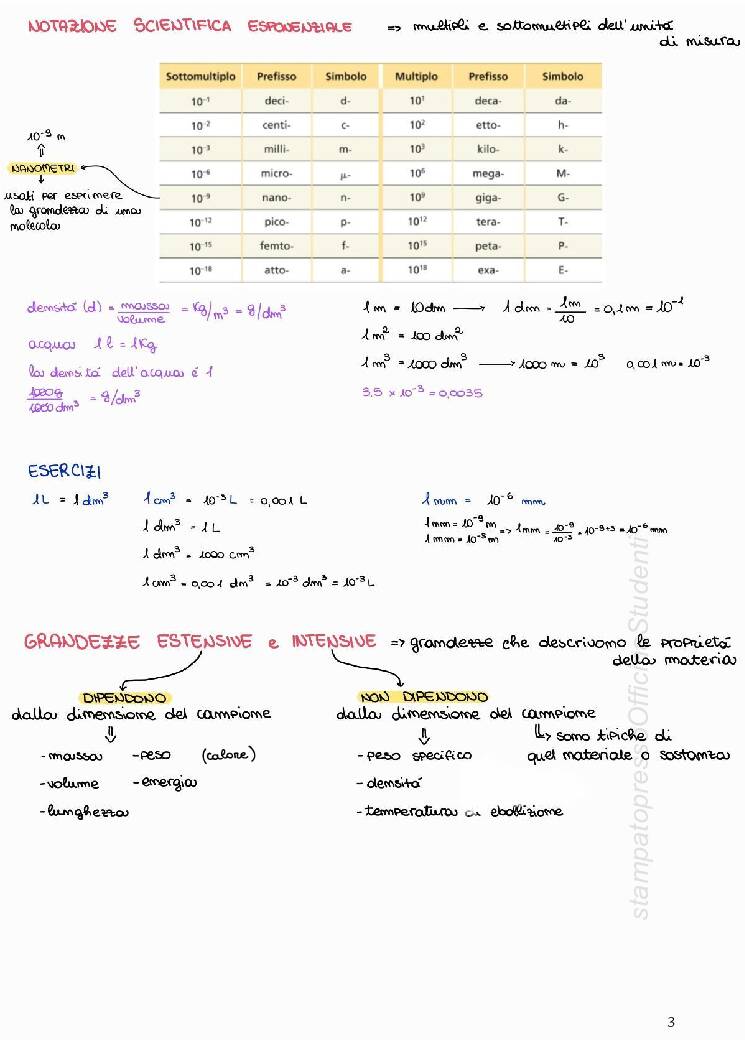 NOTAZIONE SCIENTIFICA ESPONENZIALE => multipli e sottomultipli dell'unità
di misura
Sottomultiplo Prefisso Simbolo Multiplo Prefisso Simbolo
10⁻¹ deci- d- 10¹ deca- da-
10⁻² centi- c- 10² etto- h-
10⁻³ milli- m- 10³ kilo- k-
10⁻⁶ micro- μ- 10⁶ mega- M-
10⁻⁹ nano- n- 10⁹ giga- G-
10⁻¹² pico- p- 10¹² tera- T-
10⁻¹⁵ femto- f- 10¹⁵ peta- P-
10⁻¹⁸ atto- a- 10¹⁸ exa- E-
10⁻⁹ m
⇑
NANOMETRI
↓
usati per esprimere
la grandezza di una
molecola
densità (d) = massa/volume = Kg/m³ = g/dm³
acqua 1 l = 1Kg
la densità dell'acqua è 1
1000g/1000 dm³ = g/dm³
1 m = 10dm → 1 dm = 1m/10 = 0,1m = 10⁻¹
1 m² = 100 dm²
1 m³ = 1000 dm³ → 1000 m = 10³ 0,001 m = 10⁻³
3,5 × 10⁻³ = 0,0035
ESERCIZI
1L = 1dm³ 1 cm³ = 10⁻³ L = 0,001 L
1 dm³ = 1L
1 dm³ = 1000 cm³
1 cm³ = 0,001 dm³ = 10⁻³ dm³ = 10⁻³ L
1 nm = 10⁻⁶ mm
1 nm = 10⁻⁹ m => 1nm = 10⁻⁹/10⁻³ = 10⁻⁹⁺³ = 10⁻⁶ mm
1 mm = 10⁻³ m
GRANDEZZE ESTENSIVE e INTENSIVE => grandezze che descrivono le proprietà
della materia
DIPENDONO
dalla dimensione del campione
⇓
-massa -peso (calore)
-volume -energia
-lunghezza
NON DIPENDONO
dalla dimensione del campione
⇓ ↳ sono tipiche di
-peso specifico quel materiale o sostanza
-densità
-temperatura di ebollizione
stampatopressoOfficinaStudenti
3